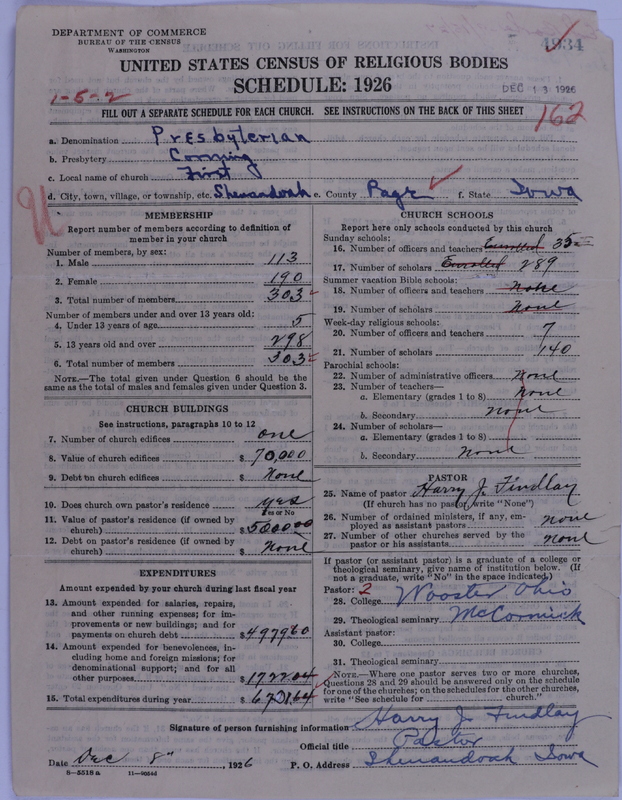 DEPARTMENT OF COMMERCE
BUREAU OF THE CENSUS
WASHINGTON
4934
UNITED STATES CENSUS OF RELIGIOUS BODIES
SCHEDULE: 1926
DEC 13 1926
1-5-2
162
FILL OUT A SEPARATE SCHEDULE FOR EACH CHURCH. SEE INSTRUCTIONS ON THE BACK OF THIS SHEET
a. Denomination Presbyterian
b. Presbytery Corning
c. Local name of church First
d. City, town, village, or township, etc. Shenandoah e. County Page f. State Iowa
MEMBERSHIP
Report number of members according to definition of
member in your church
Number of members, by sex:
1. Male 113
2. Female 190
3. Total number of members 303
Number of members under and over 13 years old:
4. Under 13 years of age 5
5. 13 years old and over 298
6. Total number of members 303
NOTE.—The total given under Question 6 should be
same as the total of males and females given under Question 3.
CHURCH BUILDINGS
See instructions, paragraphs 10 to 12
7. Number of church edifices one
8. Value of church edifices $ 70,000
9. Debt on church edifices $ None
10. Does church own pastor's residence yes
Yes or No
11. Value of pastor's residence (if owned by
church) $ 5000 00
12. Debt on pastor's residence (if owned by
church) $ None
EXPENDITURES
Amount expended by your church during last fiscal year
13. Amount expended for salaries, repairs,
and other running expenses; for im-
provements or new buildings; and for
payments on church debt $ 4979 60
14. Amount expended for benevolences, in-
cluding home and foreign missions; for
denominational support; and for all
other purposes $ 1722 04
15. Total expenditures during year $ 6701.64
CHURCH SCHOOLS
Report here only schools conducted by this church
Sunday schools:
16. Number of officers and teachers Enrolled 35
17. Number of scholars Enrolled 289
Summer vacation Bible schools:
18. Number of officers and teachers None
19. Number of scholars None
Week-day religious schools:
20. Number of officers and teachers 7
21. Number of scholars 140
Parochial schools:
22. Number of administrative officers None
23. Number of teachers—
a. Elementary (grades 1 to 8) None
b. Secondary None
24. Number of scholars—
a. Elementary (grades 1 to 8)
b. Secondary None
PASTOR
25. Name of pastor Harry J. Findlay
(If church has no pastor, write "None")
26. Number of ordained ministers, if any, em-
ployed as assistant pastors none
27. Number of other churches served by the
pastor or his assistants none
If pastor (or assistant pastor) is a graduate of a college or
theological seminary, give name of institution below. (If
not a graduate, write "No" in the space indicated.)
Pastor: 2
28. College Wooster Ohio
29. Theological seminary McCormick
Assistant pastor:
30. College
31. Theological seminary
NOTE.—Where one pastor serves two or more churches,
Questions 28 and 29 should be answered only on the schedule
for one of the churches; on the schedules for the other churches,
write "See schedule for church."
Signature of person furnishing information Harry J. Findlay
Official title Pastor
Date Dec 8", 1926 P. O. Address Shenandoah Iowa
8—5518 a 11—9034d